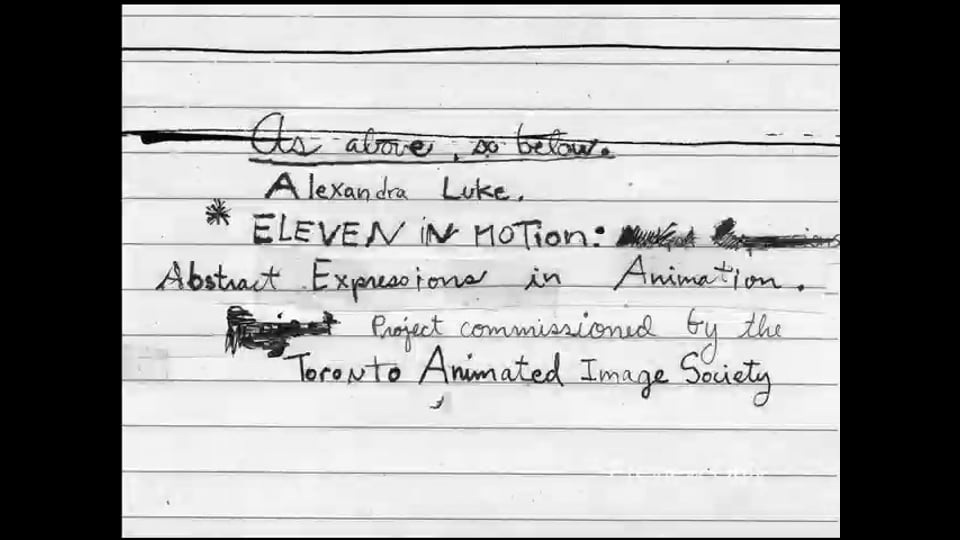 As above, so below.
Alexandra Luke.
* ELEVEN iN MOTiON:
Abstract Expressions in Animation.
Project commissioned by the
Toronto Animated Image Society